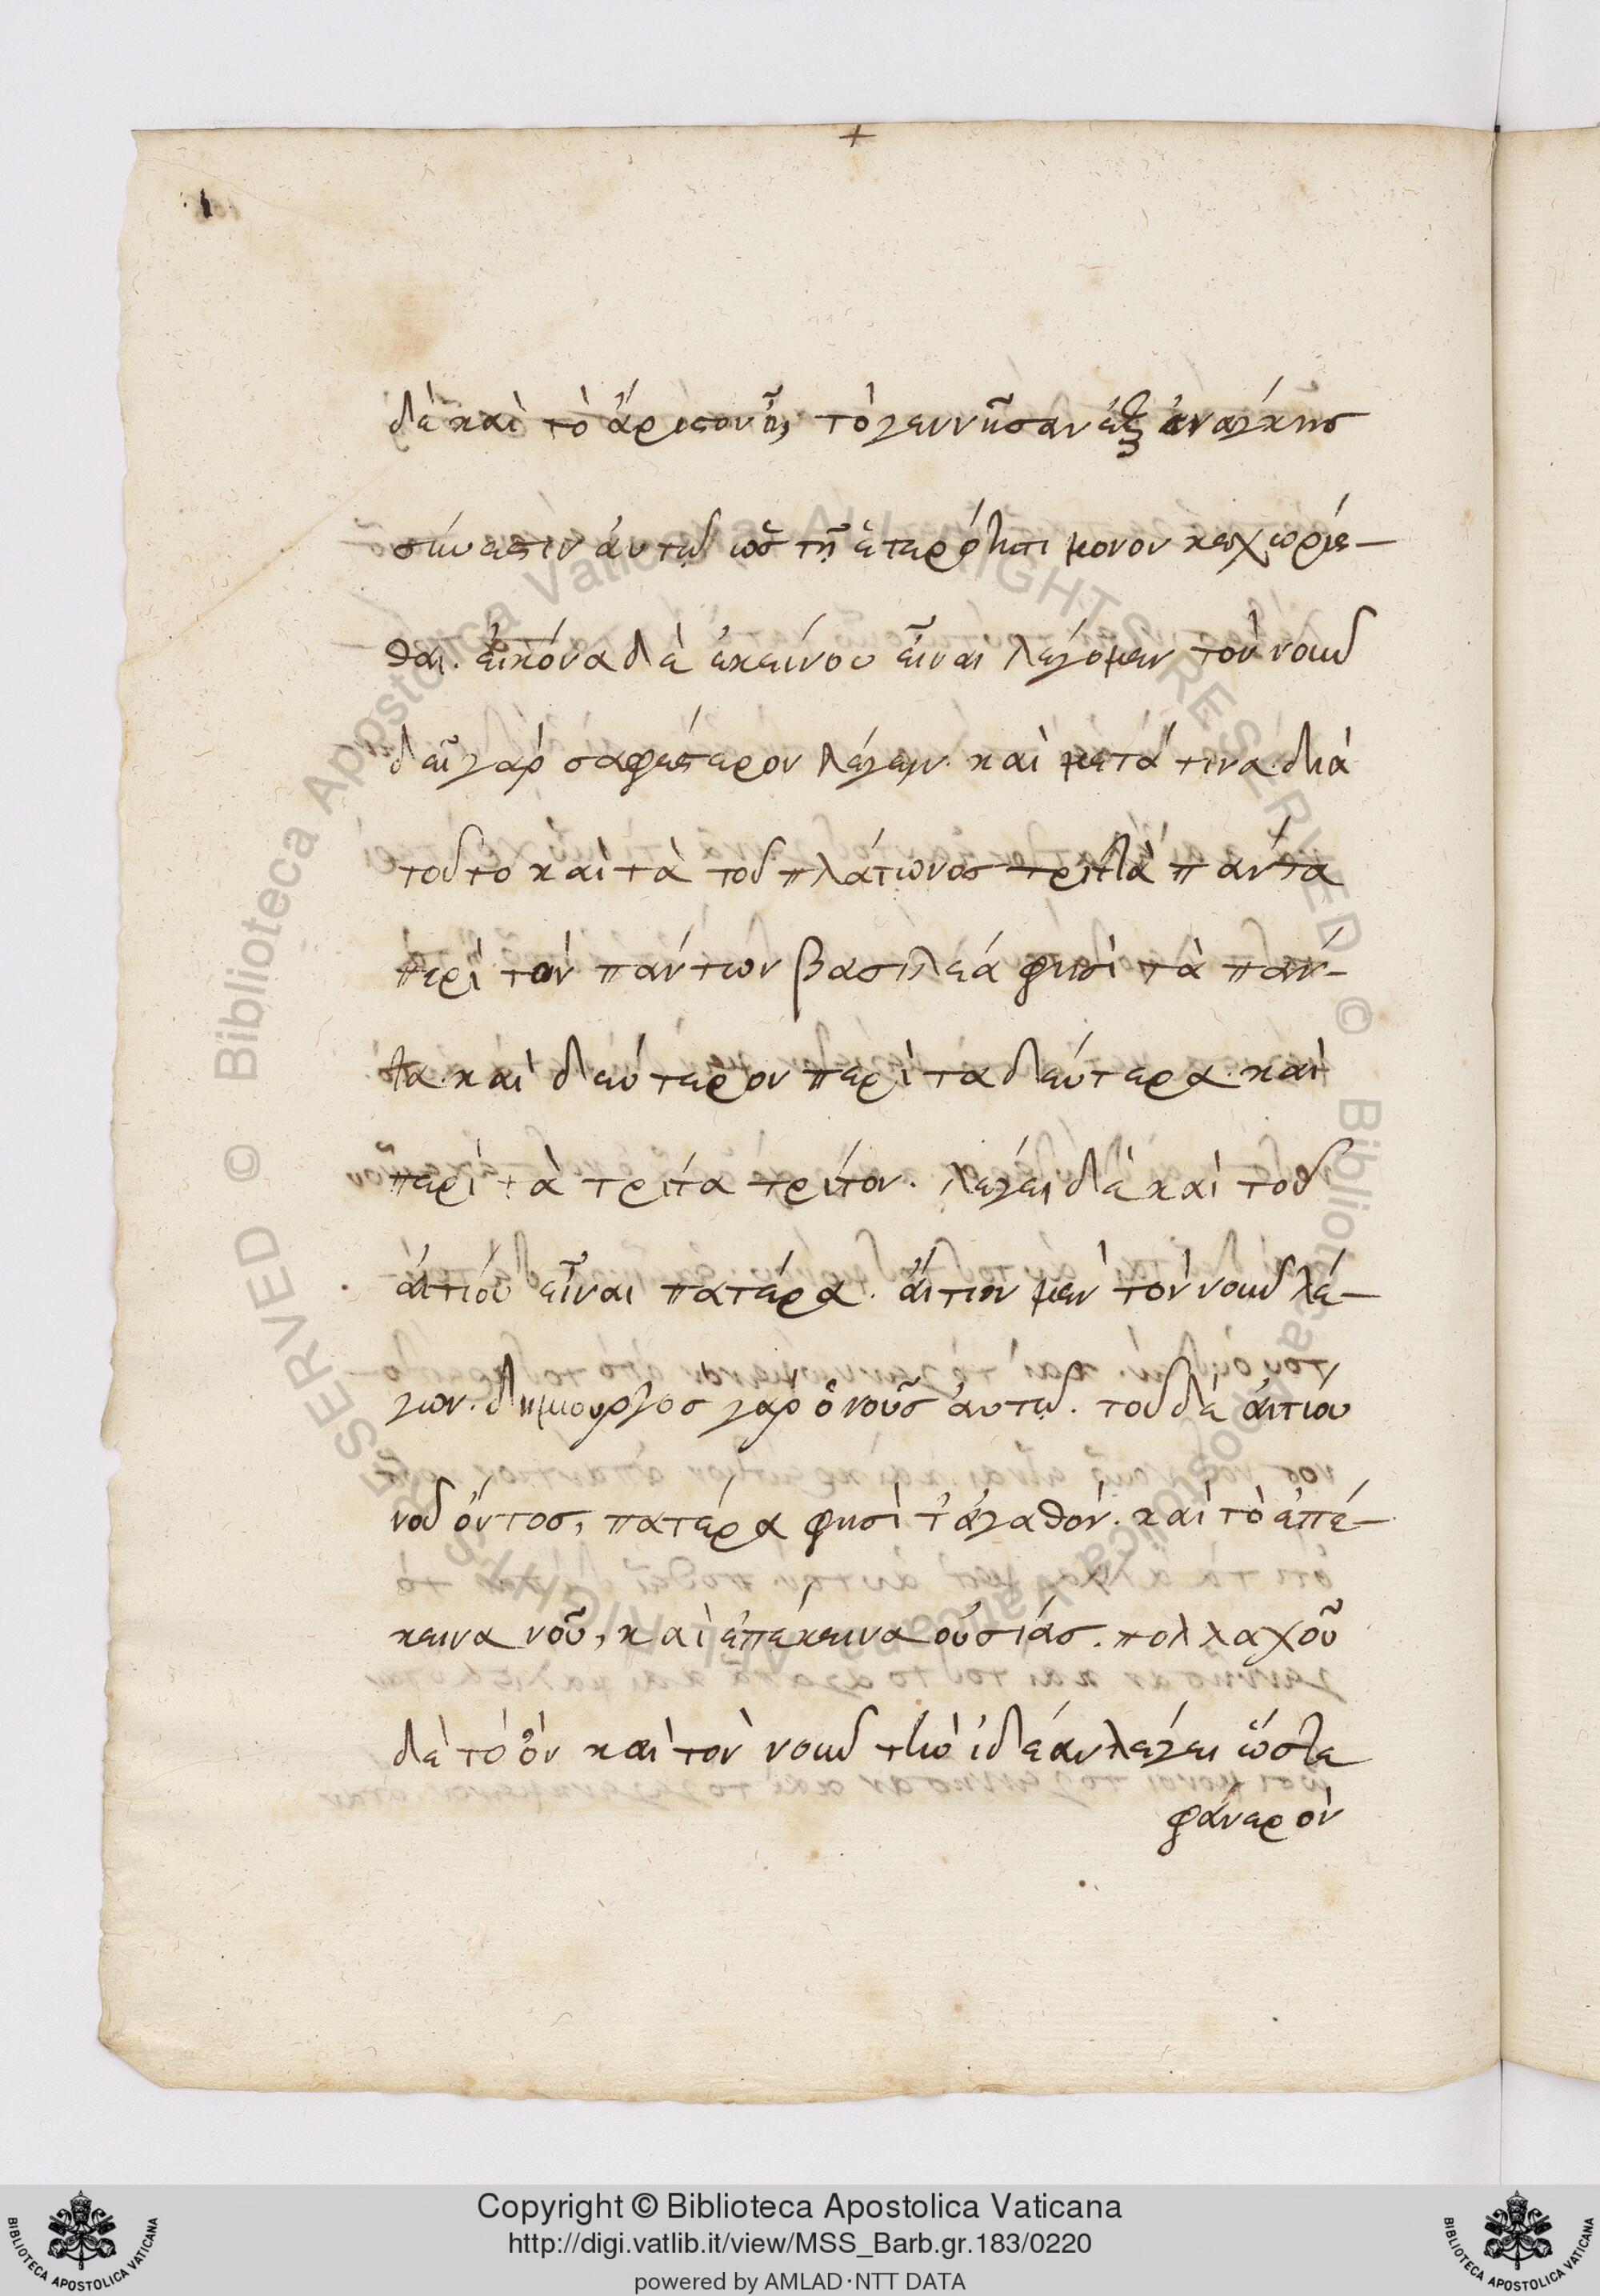 +
δὲ καὶ τὸ ἄριστον ᾖ, τὸ γεννῆσαν ἐξ ἀνάγκης
σύνεστιν ἀυτῷ ὡς τῇ ἑτερότητι μόνον κεχωρίσ-
θαι. εἰκόνα δὲ ἐκείνου εἶναι λέγομεν τὸν νοῦν
δεῖ γὰρ σαφέστερον λέγειν. καὶ μετά τινα. διὰ
τοῦτο καὶ τὰ τοῦ πλάτωνος τριττὰ πάντα
περὶ τὸν πάντων βασιλέα φησὶ τὰ πάν-
τα. καὶ δεύτερον περὶ τὰ δεύτερα. καὶ
περὶ τὰ τρίτα τρίτον. λέγει δὲ καὶ τοῦ
ἀιτίου εἶναι πατέρα. ἄιτιον μὲν τὸν νοῦν λέ-
γων. δημιουργὸς γὰρ ὁ νοῦς ἀυτῷ. τοῦ δὲ ἀιτίου
νοῦ ὄντος, πατέρα φησὶ τἀγαθόν. καὶ τὸ ἐπέ-
κεινα νοῦ, καὶ ἐπέκεινα οὐσίας. πολλαχοῦ
δὲ τὸ ὂν καὶ τὸν νοῦν τὴν ἰδέαν λέγει ὥστε
φανερὸν
© Biblioteca Apostolica Vaticana ALL RIGHTS RESERVED
© Biblioteca Apostolica Vaticana ALL RIGHTS RESERVED
Copyright © Biblioteca Apostolica Vaticana
http://digi.vatlib.it/view/MSS_Barb.gr.183/0220
powered by AMLAD·NTT DATA
BIBLIOTECA APOSTOLICA VATICANA
BIBLIOTECA APOSTOLICA VATICANA